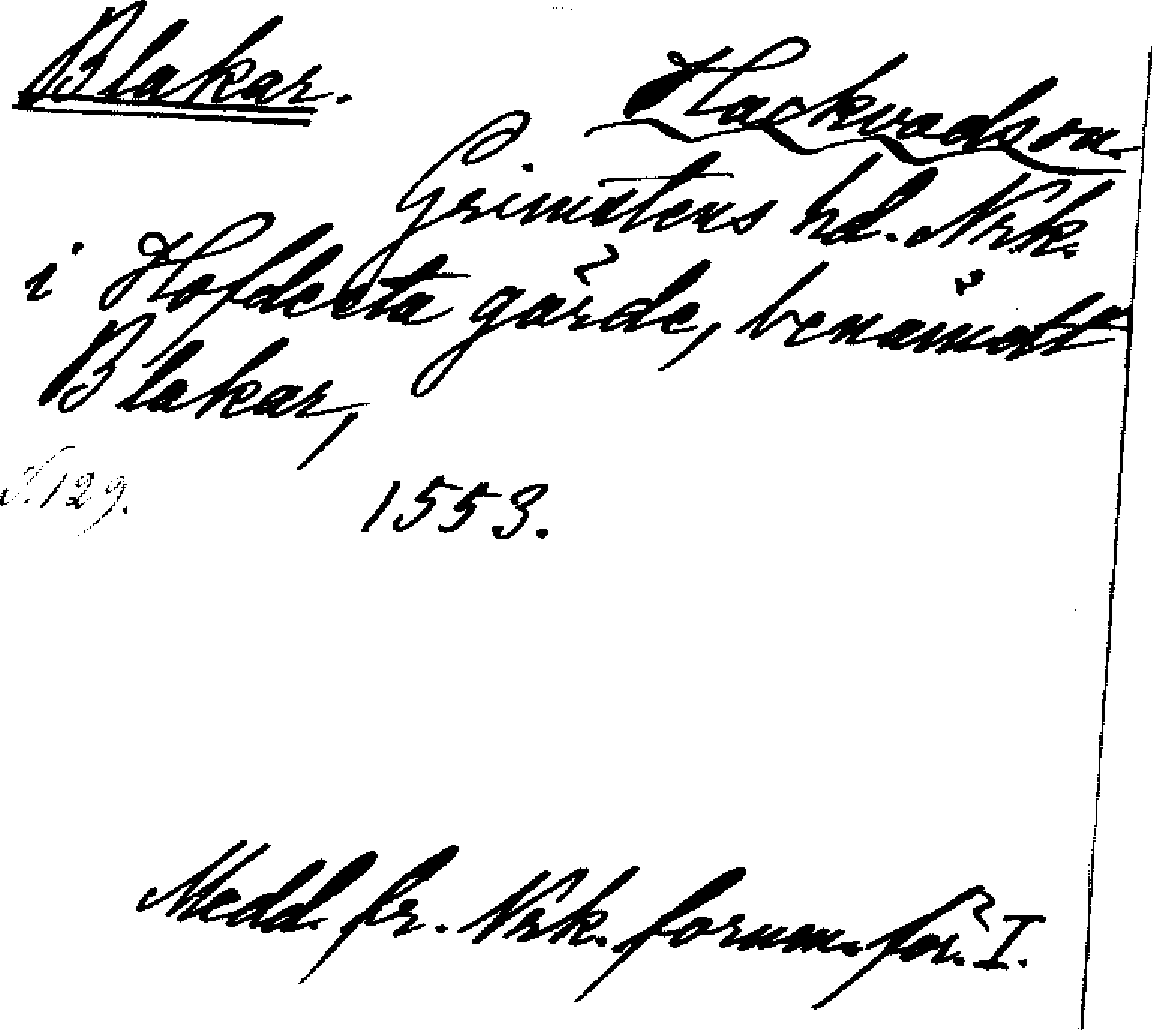 Blakar.
Hackvadson.
Grimstens hd. Nrk.
i Hofdeeta gärde, benämdt
Blakar,
S. 129.
1553.
Medd. fr. Nrk. fornm. för. I.